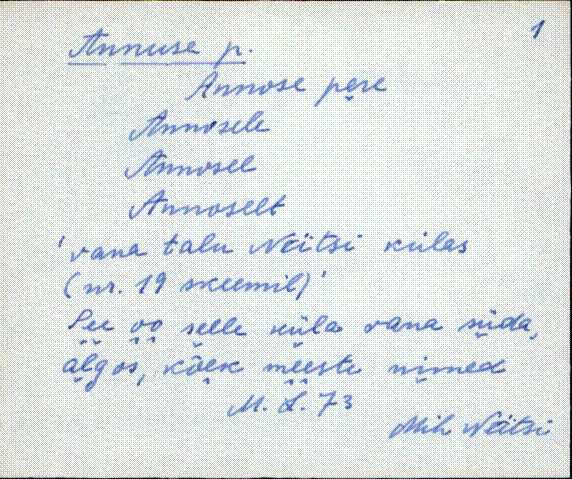 1
Annuse p.
Annose pere
Annosele
Annosel
Annoselt
'vana talu Näitsi külas
(nr. 19 skeemil)'
See oo selle küla vana süda,
algos, kõek meeste nimed
M. L. 73
Mih Näitsi